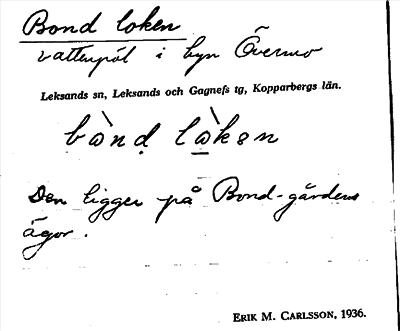 Bond loken
vattenpöl i byn Övermo
Leksands sn, Leksands och Gagnefs tg, Kopparbergs län.
bònḍ lò̲kən
Den ligger på Bond-gårdens
ägor.
ERIK M. CARLSSON, 1936.